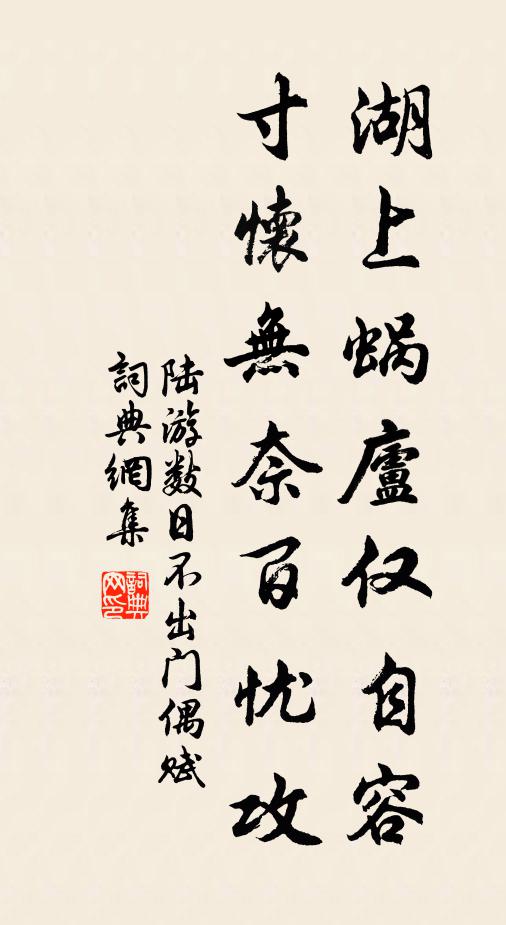 湖上蜗廬仅自容
寸懷無奈百忧攻
陆游数日不出门偶赋
詞典網集
詞典网印